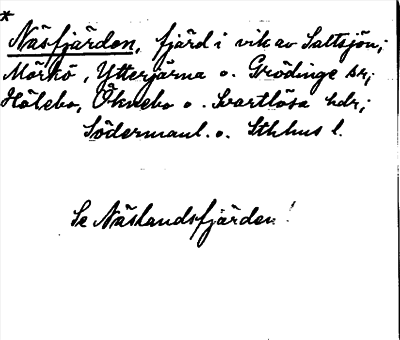 *
Näsfjärden, fjärd i vik av Saltsjön;
Mörkö, Ytterjärna o. Grödinge snr;
Hölebo, Öknebo o. Svartlösa hdr;
Södermanl. o. Sthlms l.
Se Näslandsfjärden!